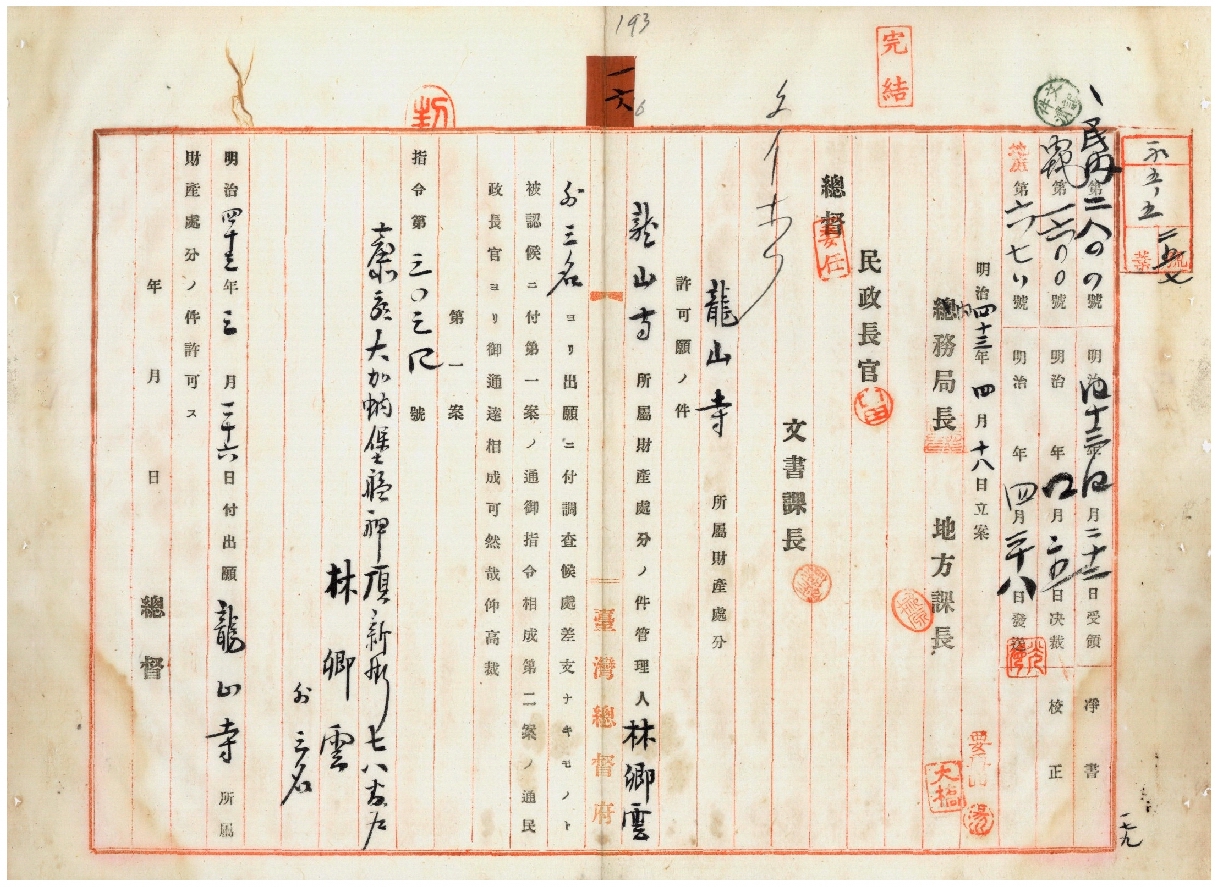 193
完結
一六
民內第二八〇〇號 明治四十三年四月二十二日受領 淨書
第一六〇〇號 明治 年四月二五日決裁 校正
地庶第六七八號 明治 年四月二十八日發送
明治四十三年四月十八日立案
總務局長 地方課長
大橋
民政長官
總督
委任
文書課長
龍山寺 所屬財產處分
許可願ノ件
龍山寺 所屬財產處分ノ件管理人林卿雲
外三名ヨリ出願ニ付調查候處差支ナキモノト
被認候ニ付第一案ノ通御指令相成第二案ノ通民
政長官ヨリ御通達相成可然哉仰高裁
臺灣總督府
第一案
指令第三〇三〇號
大加蚋堡艋舺頂新街七八番戶
林卿雲
外三名
明治四十三年三月二十六日付出願龍山寺所屬
財產處分ノ件許可ス
年 月 日 總督
一七九